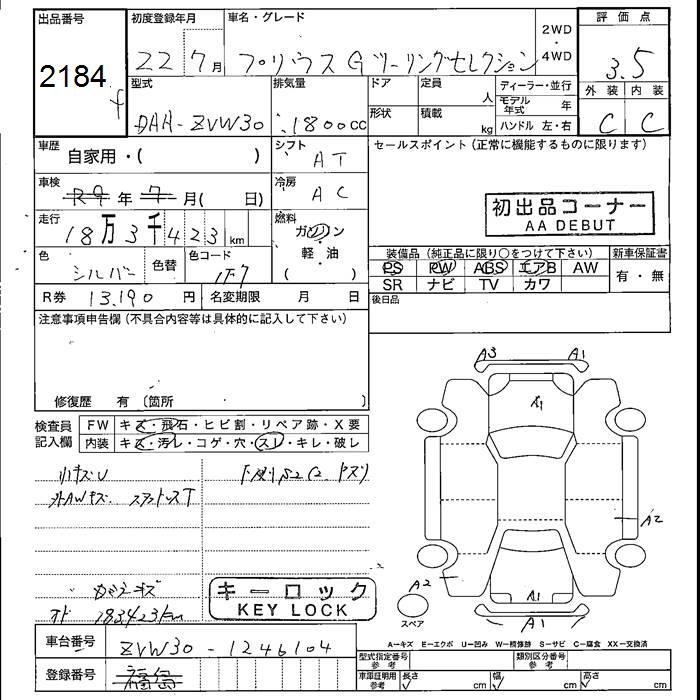 出品番号 初度登録年月 車名・グレード 2WD・4WD 評価点
2184 22 7月 プリウス G ツーリングセレクション 3.5
型式 排気量 ドア 定員 人 ディーラー・並行 外装 内装
DAA-ZVW30 1800cc 形状 積載 kg モデル年式 年 C C
ハンドル 左・右
車歴 自家用・( ) シフト AT セールスポイント(正常に機能するものに限ります)
車検 R9年 7月( 日) 冷房 AC
初出品コーナー
AA DEBUT
走行 18万3千423km 燃料 ガソリン・軽油 ( )
色 シルバー 色替 色コード 1F7
装備品(純正品に限り○をつけて下さい) 新車保証書
PS PW ABS エアB AW 有・無
SR ナビ TV カワ
R券 13,190円 名変期限 月 日 後日品
注意事項申告欄(不具合内容等は具体的に記入して下さい)
修復歴 有 (箇所
A3 A1
A1
検査員記入欄 FW キズ・飛石・ヒビ割・リペア跡・X要
内装 キズ・汚レ・コゲ・穴・スレ・キレ・破レ
小キズU
外AWキズ スタントレスT
A2
A2
キーロック
KEY LOCK
オド 183423km
スペア
A1
A1
A=キズ E=エクボ U=凹み W=補修跡 S=サビ C=腐食 XX=交換済
車台番号 ZVW30-1246104
型式指定番号 参考 類別区分番号 参考
登録番号 福島
車庫証明用 参考 長さ cm 幅 cm 高さ cm